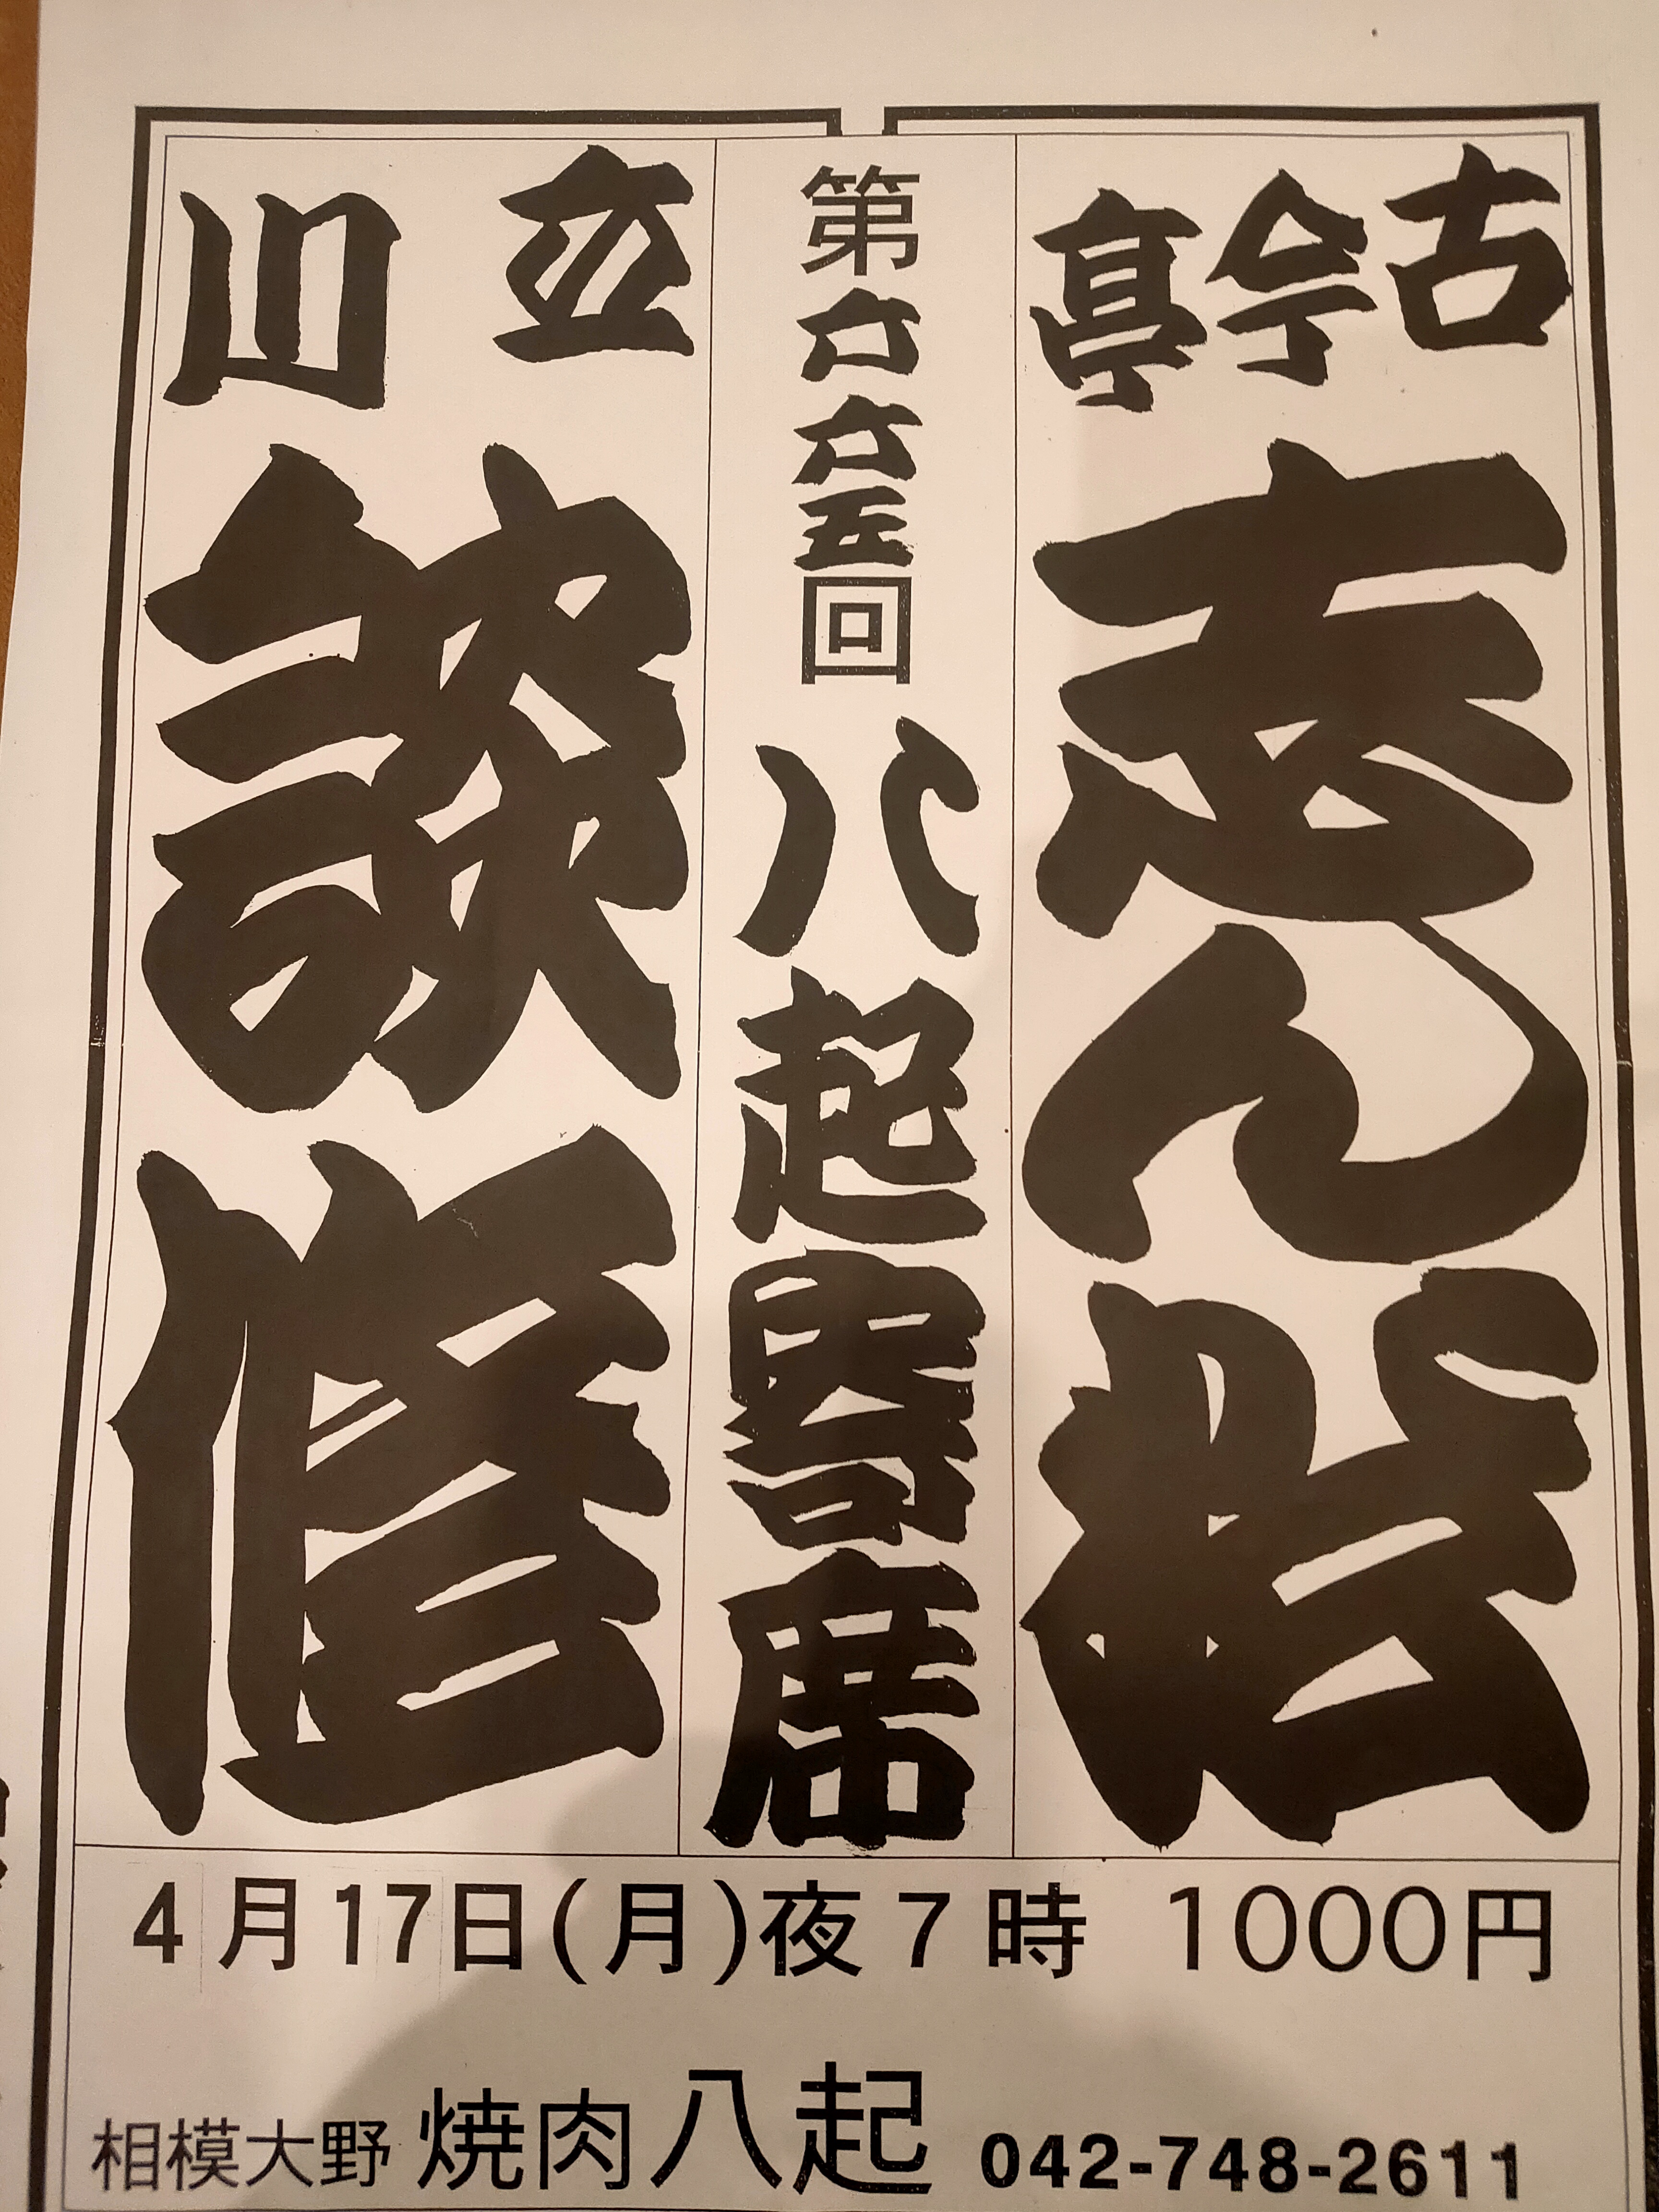 古今亭
志ん松
第六六五回 八起寄席
立川
談修
4月17日(月)夜7時 1000円
相模大野 焼肉八起 042-748-2611